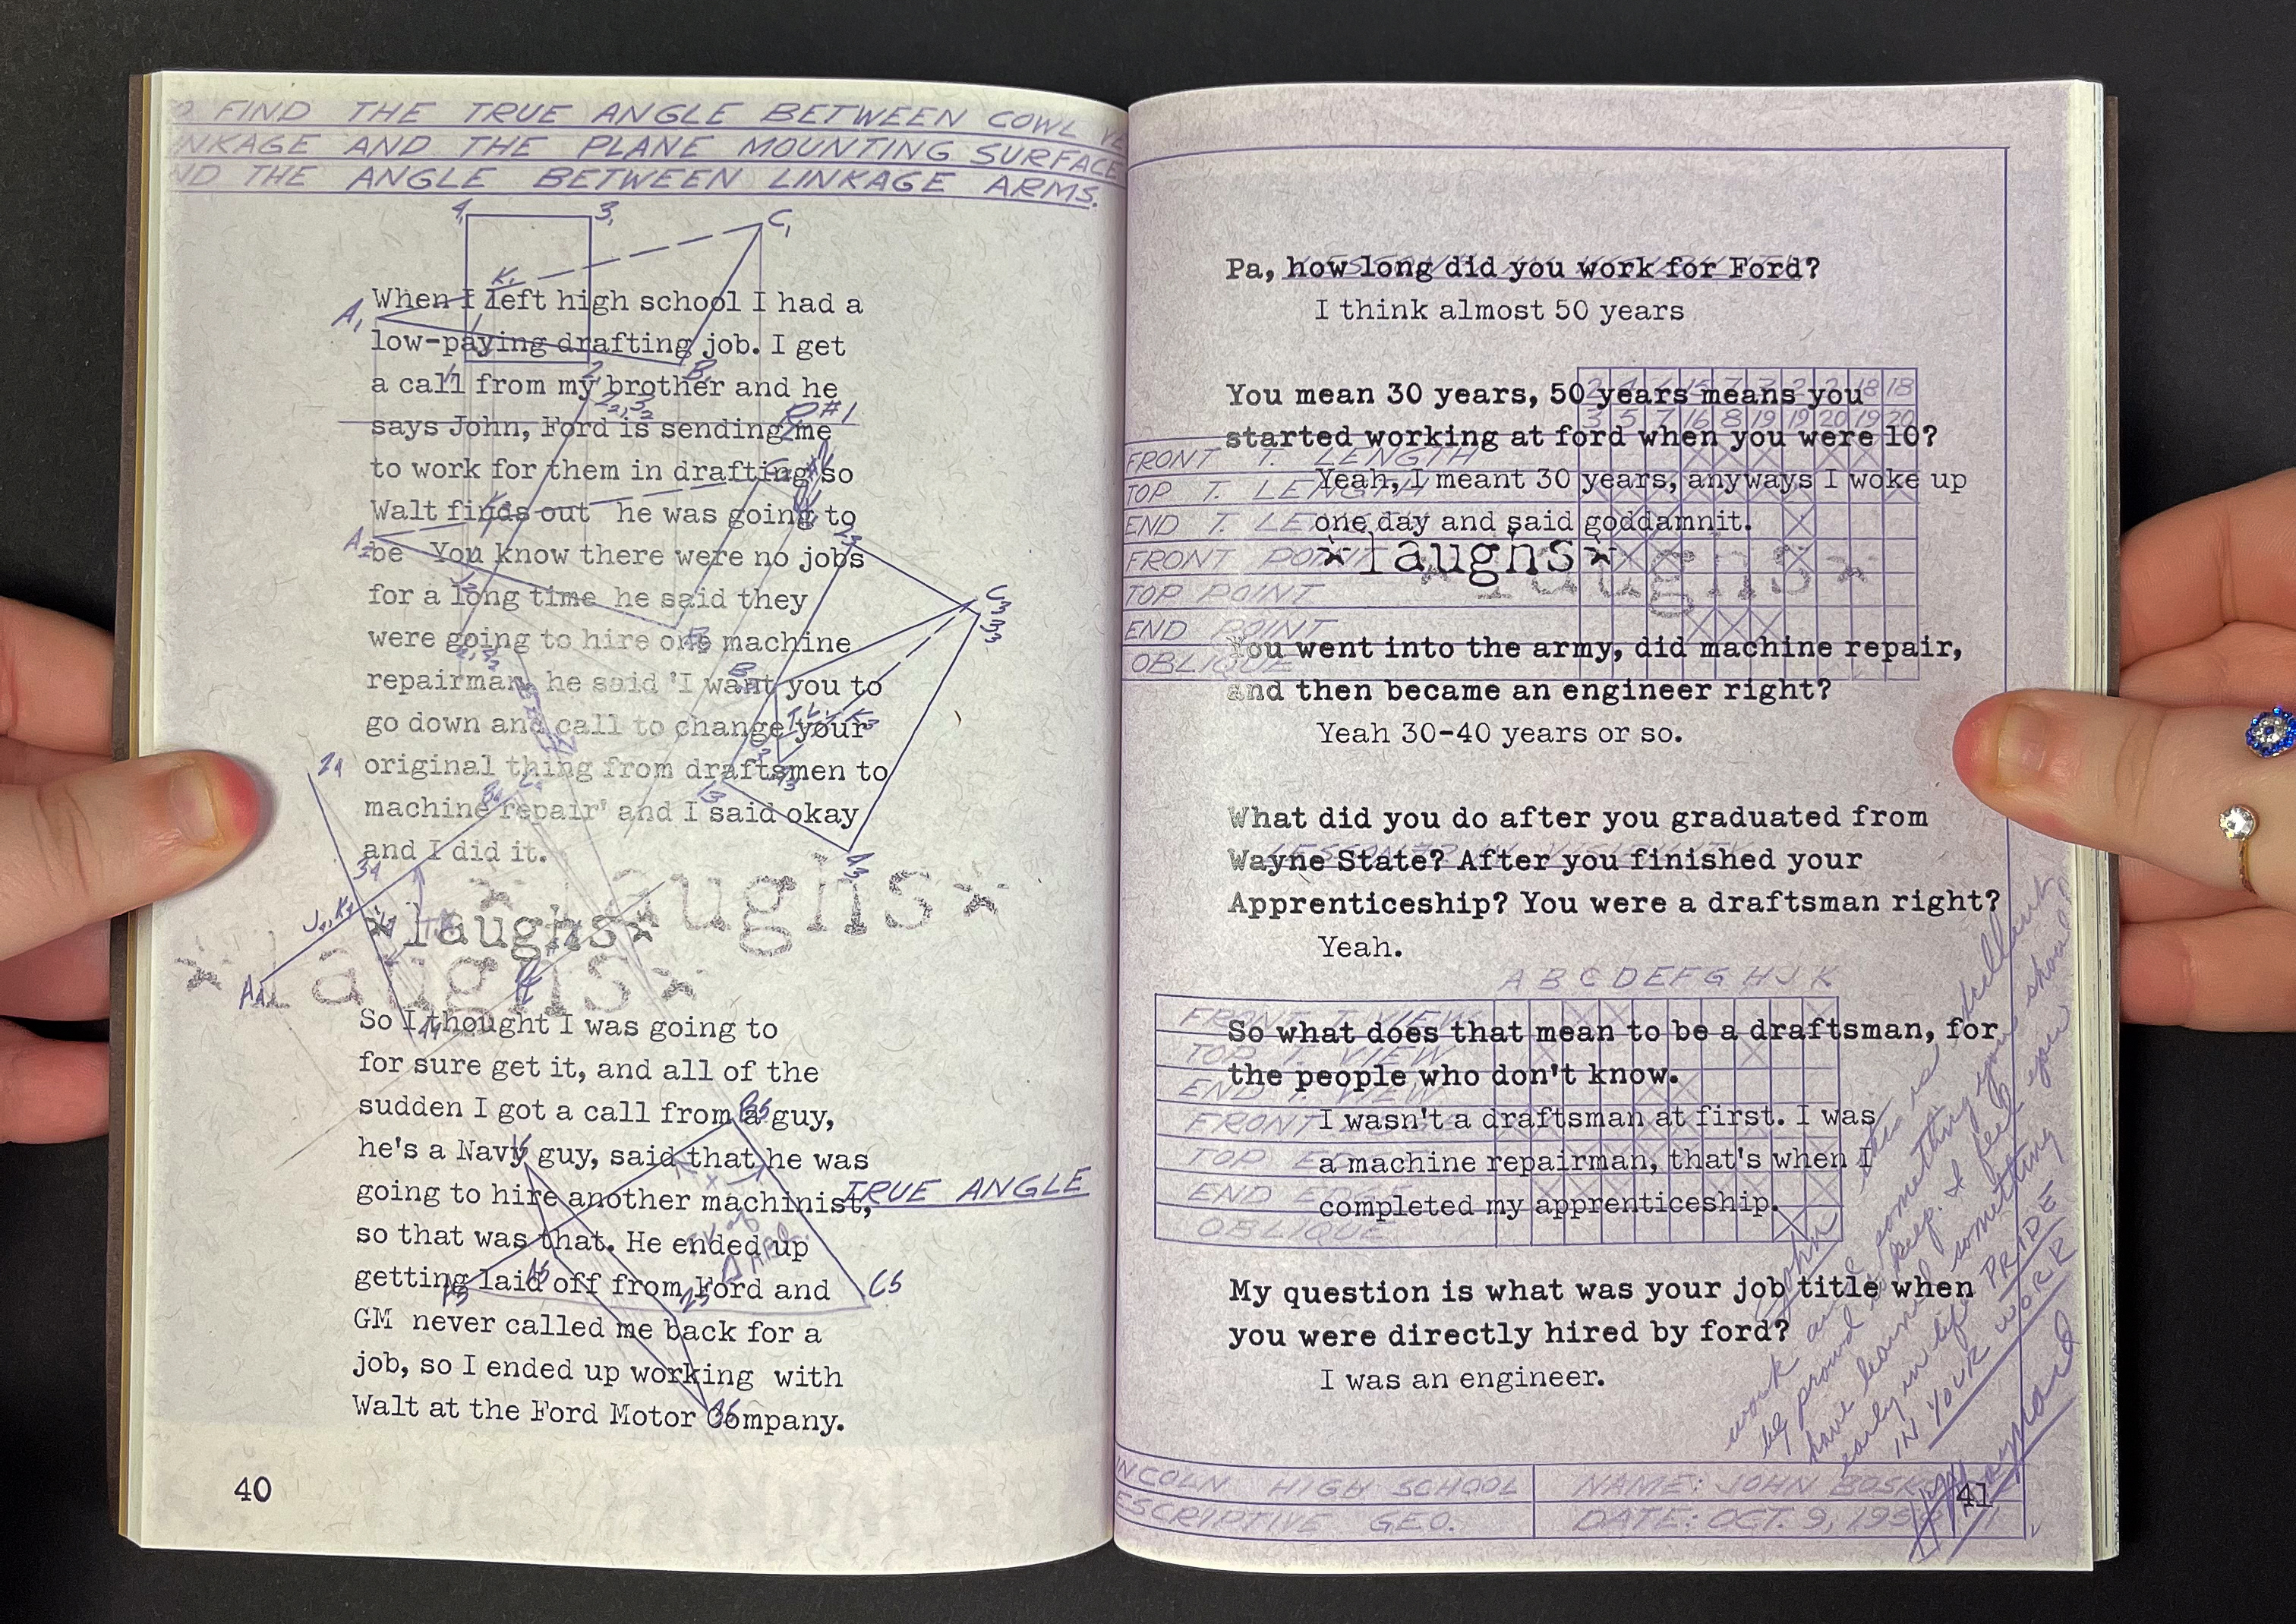 FIND THE TRUE ANGLE BETWEEN COWL
NKAGE AND THE PLANE MOUNTING SURFACE
ND THE ANGLE BETWEEN LINKAGE ARMS.
When I left high school I had a
low-paying drafting job. I get
a call from my brother and he
says John, Ford is sending me
to work for them in drafting so
Walt finds out he was going to
be You know there were no jobs
for a long time he said they
were going to hire one machine
repairman, he said 'I want you to
go down and call to change your
original thing from draftsmen to
machine repair' and I said okay
and I did it.
*laughs*
*laughs*
*laughs*
So I thought I was going to
for sure get it, and all of the
sudden I got a call from a guy,
he's a Navy guy, said that he was
going to hire another machinist,
so that was that. He ended up
getting laid off from Ford and
GM never called me back for a
job, so I ended up working with
Walt at the Ford Motor Company.
TRUE ANGLE
40
Pa, how long did you work for Ford?
I think almost 50 years
You mean 30 years, 50 years means you
started working at ford when you were 10?
Yeah, I meant 30 years, anyways I woke up
one day and said goddamnit.
*laughs*
*laughs*
You went into the army, did machine repair,
and then became an engineer right?
Yeah 30-40 years or so.
What did you do after you graduated from
Wayne State? After you finished your
Apprenticeship? You were a draftsman right?
Yeah.
So what does that mean to be a draftsman, for
the people who don't know.
I wasn't a draftsman at first. I was
a machine repairman, that's when I
completed my apprenticeship.
My question is what was your job title when
you were directly hired by ford?
I was an engineer.
FRONT T. LENGTH
TOP T. LENGTH
END T. LENGTH
FRONT POINT
TOP POINT
END POINT
OBLIQUE
A B C D E F G H J K
FRONT T. VIEW
TOP T. VIEW
END T. VIEW
FRONT
TOP
END EDGE
OBLIQUE
John
this is excellent
work and something you should
be proud to keep. I feel you
have learned something
early in life PRIDE
IN YOUR WORK
NCOLN HIGH SCHOOL
ESCRIPTIVE GEO.
NAME: JOHN
DATE: OCT. 9,
41